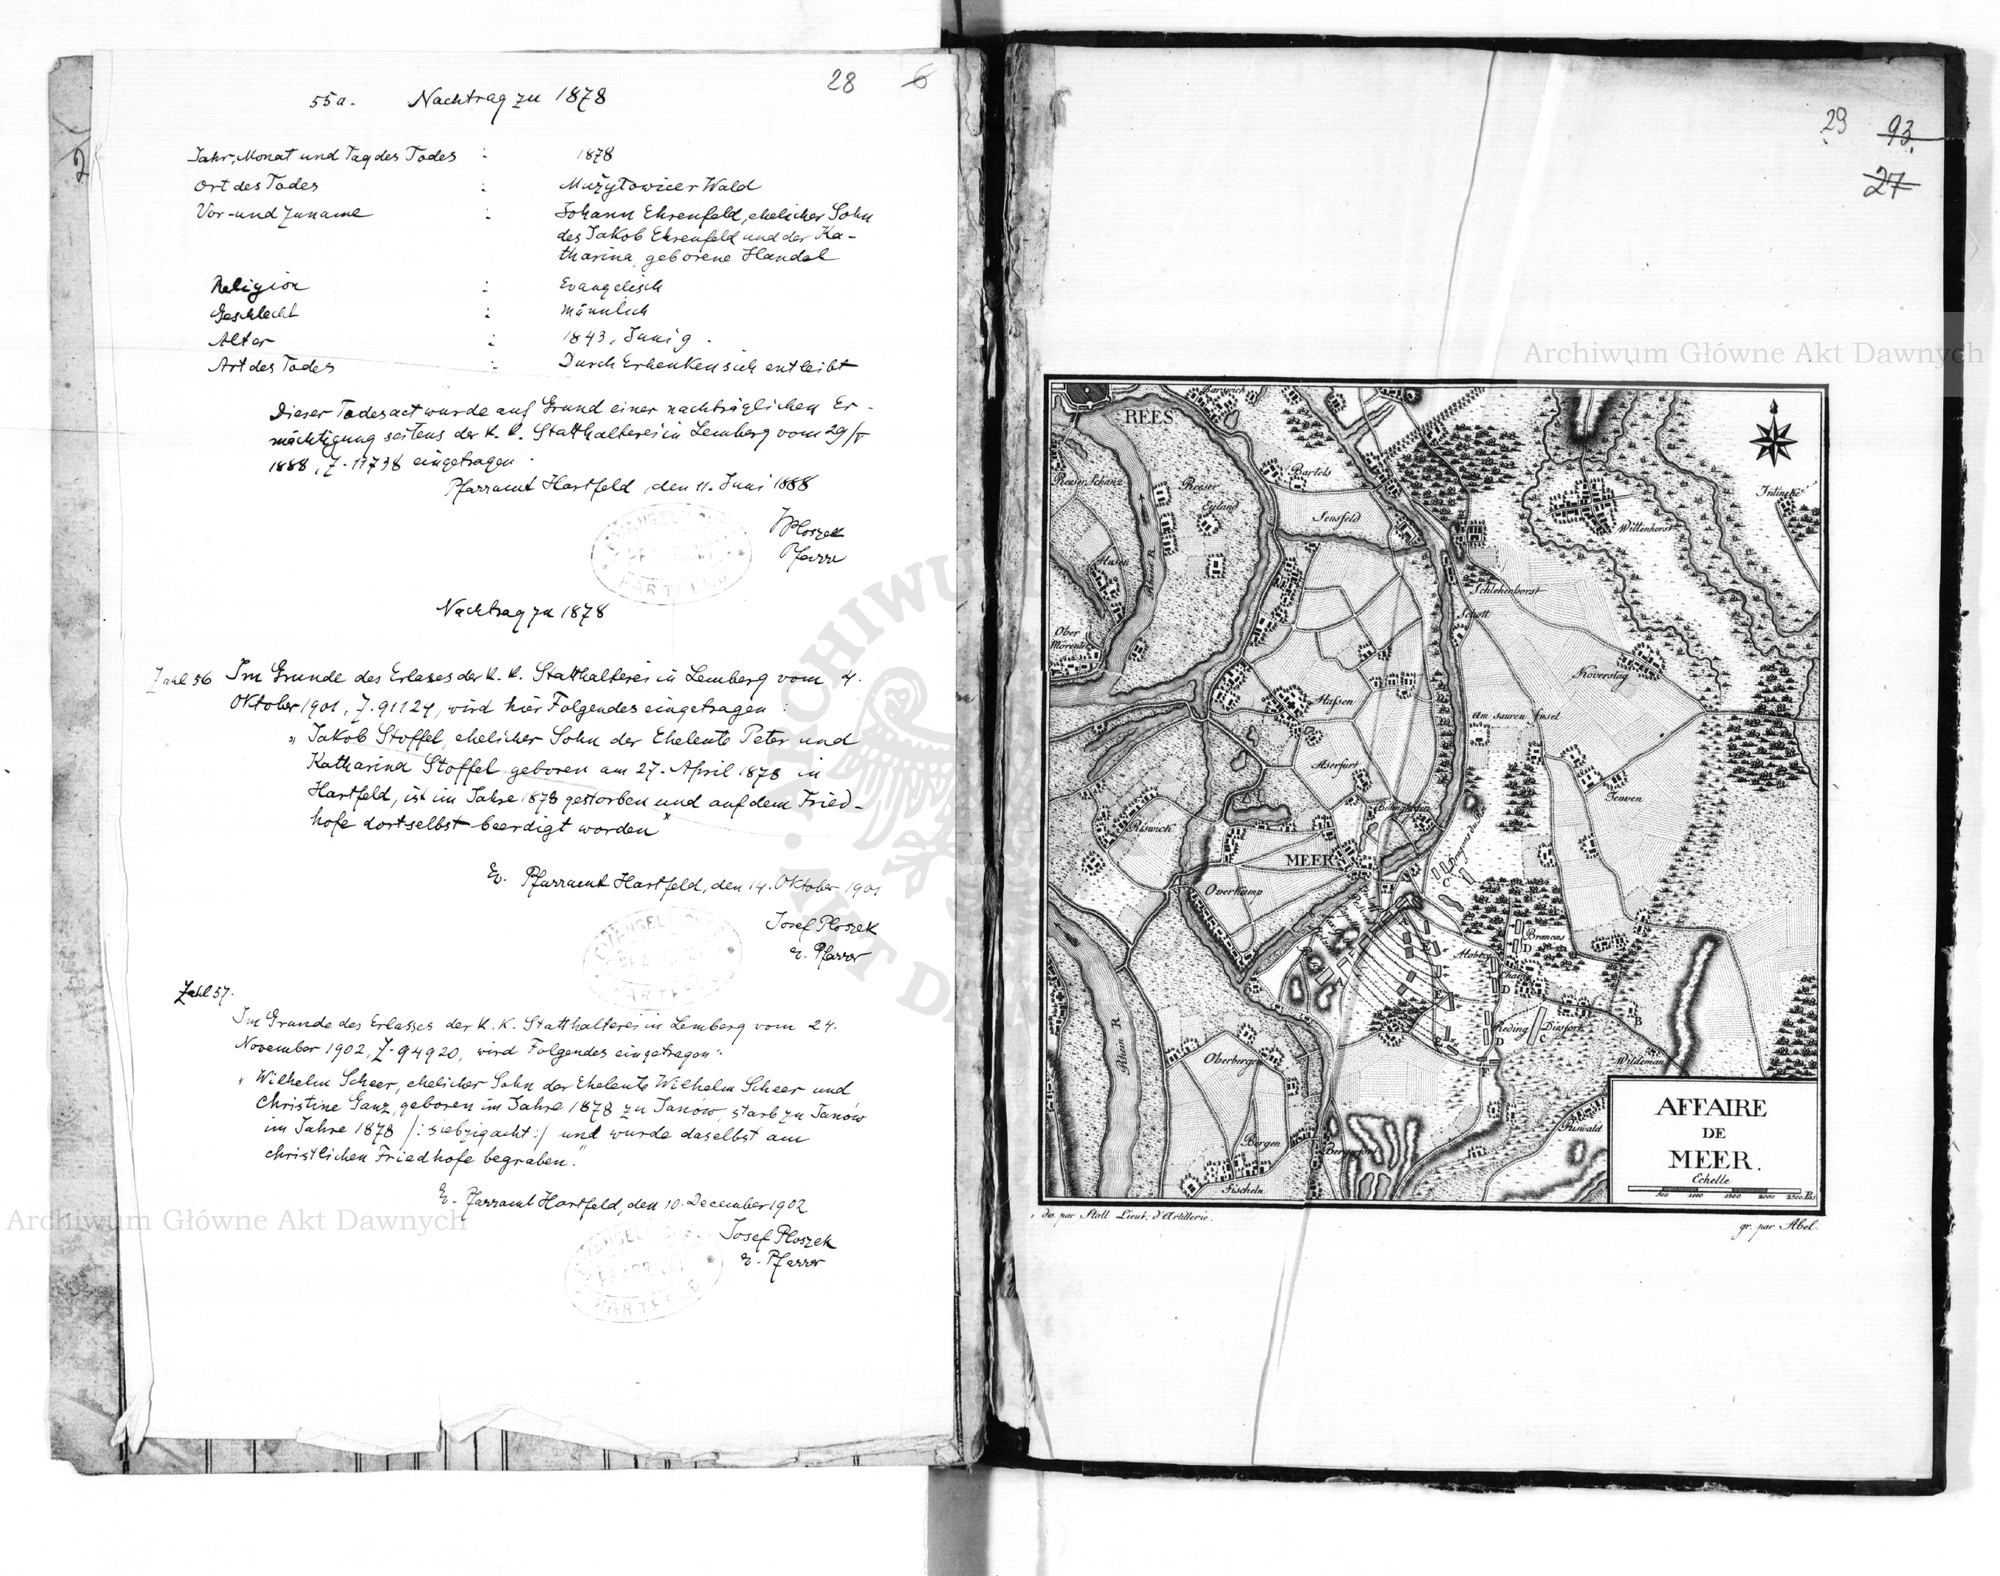 28 6
55a. Nachtrag zu 1878
2
Jahr, Monat und Tag des Todes : 1878
Ort des Todes : Mużyłowicer Wald
Vor- und Zuname : Johann Ehrenfeld, ehelicher Sohn
des Jakob Ehrenfeld und der Ka-
tharina, geborene Handel
Religion : Evangelisch
Geschlecht : männlich
Alter : 1843,
Art des Todes : Durch Erhenken sich entleibt
Dieser Todesact wurde auf Grund einer nachträglichen Er-
mächtigung seitens der k. k. Statthalterei in Lemberg vom 29/V
1888, Z. 11738 eingetragen.
Pfarramt Hartfeld, den 11. Juni 1888
JPloszek
Pfarrer
Nachtrag zu 1878
Zahl 56 Im Grunde des Erlases der k. k. Statthalterei in Lemberg vom 4.
Oktober 1901, Z. 91124, wird hier Folgendes eingetragen:
"Jakob Stoffel, ehelicher Sohn der Eheleute Peter und
Katharina Stoffel geboren am 27. April 1878 in
Hartfeld, ist im Jahre 1878 gestorben und auf dem Fried-
hofe dortselbst beerdigt worden"
Ev. Pfarramt Hartfeld, den 14. Oktober 1901
Josef Ploszek
ev. Pfarrer
Zahl 57.
Im Grunde des Erlasses der k. k. Statthalterei in Lemberg vom 24.
November 1902, Z. 94920, wird Folgendes eingetragen:
"Wilhelm Scheer, ehelicher Sohn der Eheleute Wilhelm Scheer und
Christine Ganz, geboren im Jahre 1878 zu Janów, starb zu Janów
im Jahre 1878 /: siebzigacht :/ und wurde daselbst am
christlichen Friedhofe begraben."
Ev. Pfarramt Hartfeld, den 10. December 1902
Josef Ploszek
ev. Pfarrer
Archiwum Główne Akt Dawnych
29 93.
27
Archiwum Główne Akt Dawnych
REES
Barwich
Reeser Schanz
Reeser
Eyland
Bartels
Sensfeld
Wittenhorst
Husen
Rhein R.
Schlehenhorst
Schott
Ober
Mörenter
Haffen
Koverstag
Am sauren Insel
Aserfurt
Teuven
Riswick
MEER
Overkamp
C
Brancas
D
Chaing
D
Reding
D
Diesfort
C
B
E
E
F
A
Wildeman
Rhein R
Oberbergen
Bergen
Bergerfort
Fischeln
Ruswald
AFFAIRE
DE
MEER.
Echelle
500 1000 1500 2000 2500 Pas
des. par Stoll Lieut. d'Artillerie.
gr. par Abel.